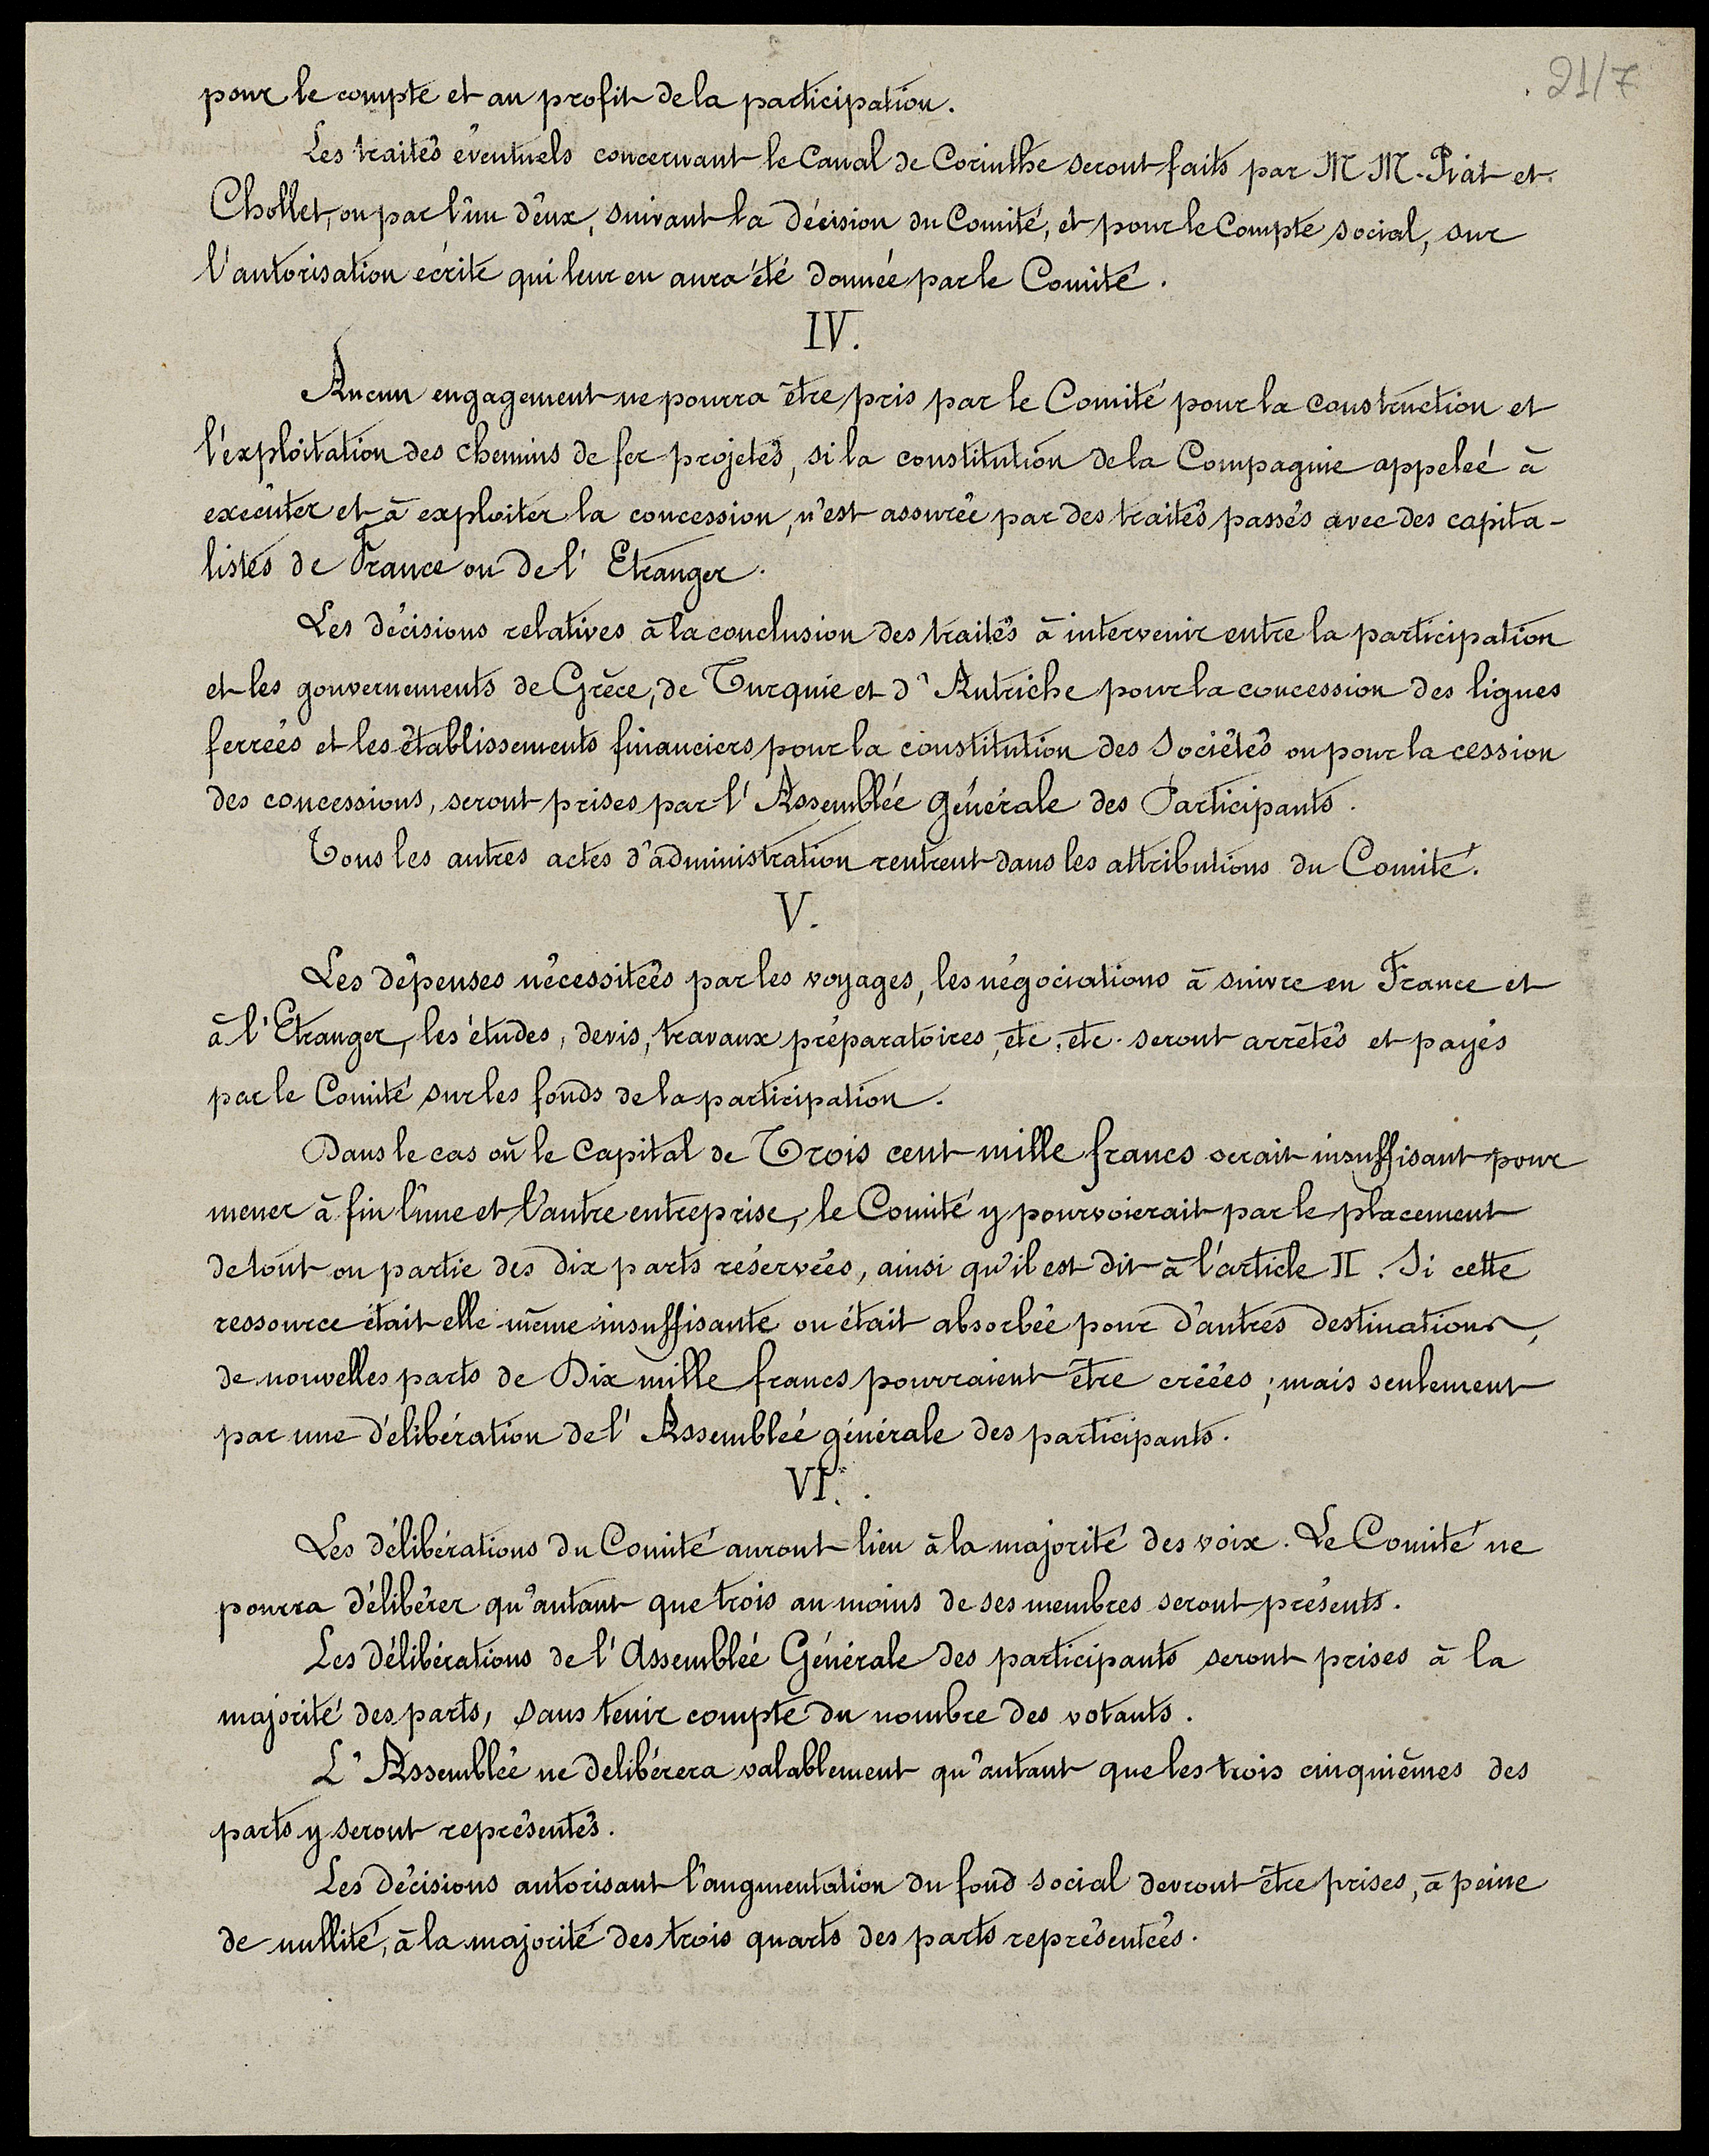 21/7
pour le compte et au profit de la participation.
Les traités éventuels concernant le Canal de Corinthe seront faits par M M. Piat et
Chollet, ou par l'un d'eux, suivant la décision du Comité, et pour le Compte social, sur
l'autorisation écrite qui leur en aura été donnée par le Comité.
IV.
Aucun engagement ne pourra être pris par le Comité pour la construction et
l'exploitation des chemins de fer projetés, si la constitution de la Compagnie appelée à
exécuter et à exploiter la concession, n'est assurée par des traités passés avec des capita-
listes de France ou de l'Etranger.
Les décisions relatives à la conclusion des traités à intervenir entre la participation
et les gouvernements de Grèce, de Turquie et d'Autriche pour la concession des lignes
ferrées et les établissements financiers pour la constitution des Sociétés ou pour la cession
des concessions, seront prises par l'Assemblée Générale des Participants.
Tous les autres actes d'administration rentrent dans les attributions du Comité.
V.
Les dépenses nécessitées par les voyages, les négociations à suivre en France et
à l'Etranger, les études, devis, travaux préparatoires, etc, etc. seront arrêtés et payés
par le Comité sur les fonds de la participation.
Dans le cas où le Capital de Trois cent mille francs serait insuffisant pour
mener à fin l'une et l'autre entreprise, le Comité y pourvoierait par le placement
de tout ou partie des dix parts réservées, ainsi qu'il est dit à l'article II. Si cette
ressource était elle même insuffisante ou était absorbée pour d'autres destinations,
de nouvelles parts de Dix mille francs pourraient être créées ; mais seulement
par une délibération de l'Assemblée générale des participants.
VI.
Les délibérations du Comité auront lieu à la majorité des voix. Le Comité ne
pourra délibérer qu'autant que trois au moins de ses membres seront présents.
Les délibérations de l'Assemblée Générale des participants seront prises à la
majorité des parts, sans tenir compte du nombre des votants.
L'Assemblée ne delibérera valablement qu'autant que les trois cinquièmes des
parts y seront représentés.
Les décisions autorisant l'augmentation du fond social devront être prises, à peine
de nullité, à la majorité des trois quarts des parts représentées.